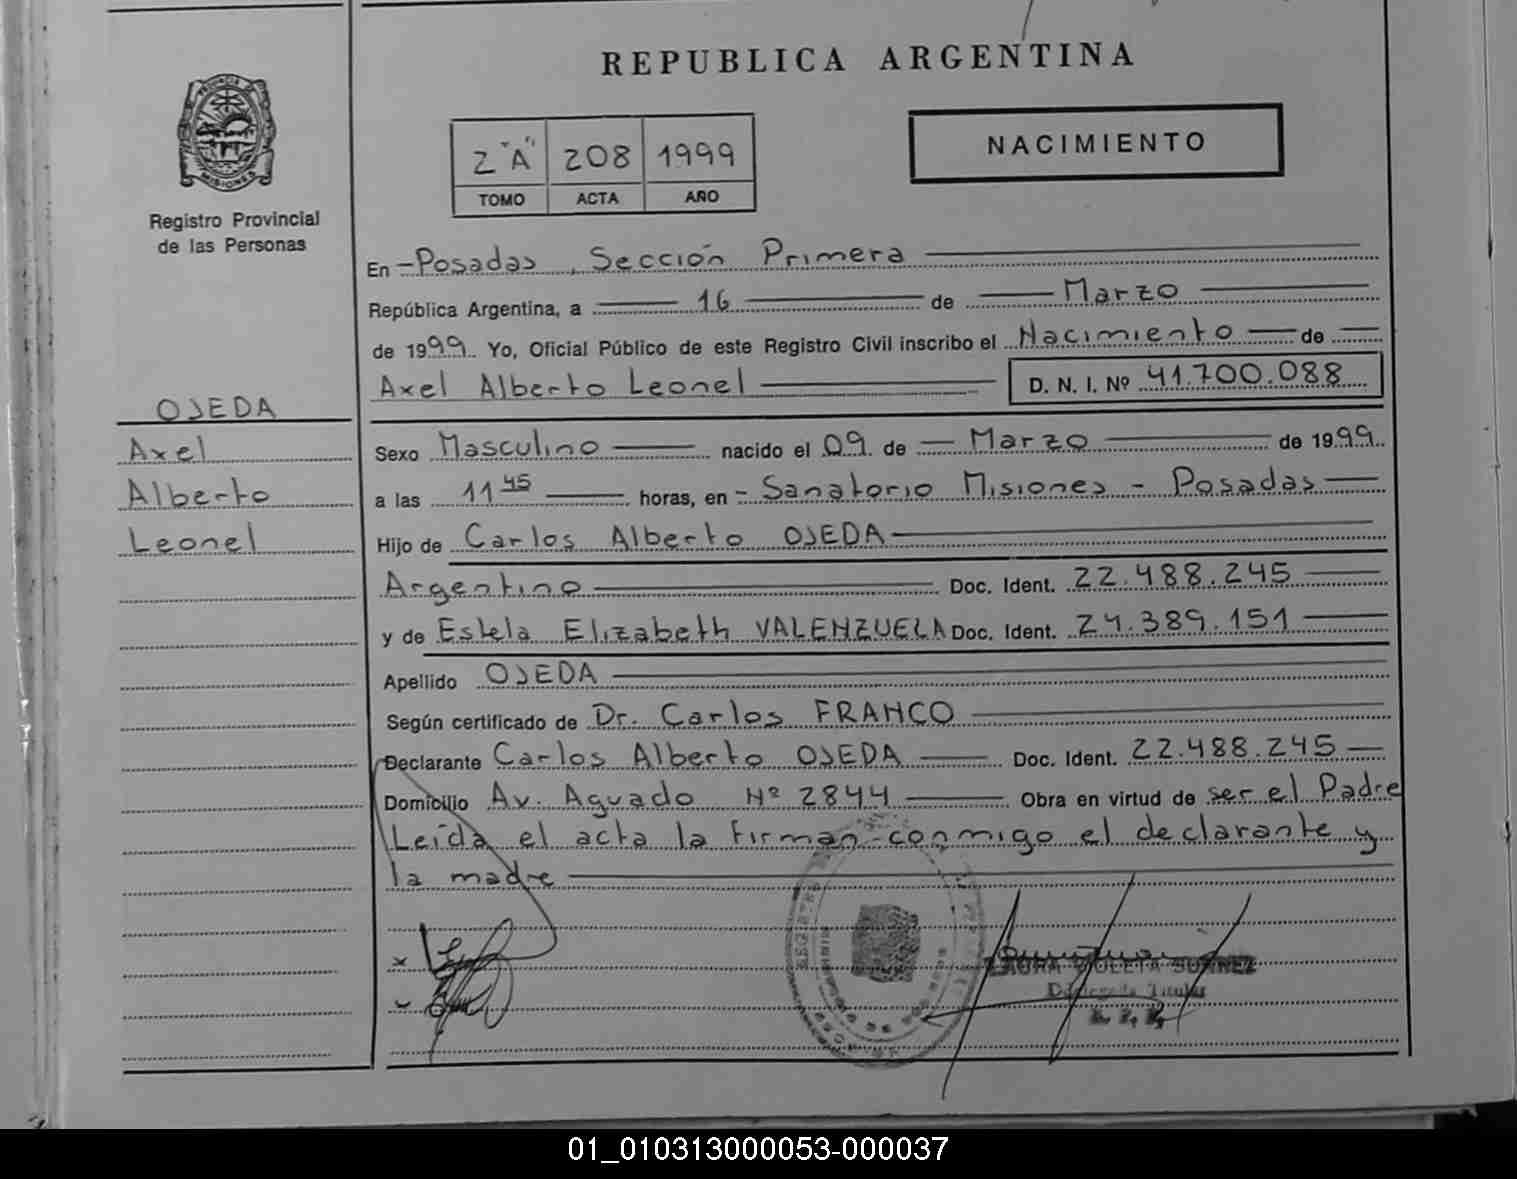 REPUBLICA ARGENTINA
PROVINCIA DE
MISIONES
Registro Provincial
de las Personas
2 "A" 208 1999
TOMO ACTA AÑO
NACIMIENTO
En - Posadas, Sección Primera
República Argentina, a 16 de Marzo
de 1999. Yo, Oficial Público de este Registro Civil inscribo el Nacimiento de
Axel Alberto Leonel D. N. I. Nº 41.700.088
OJEDA
Axel
Alberto
Leonel
Sexo Masculino nacido el 09 de Marzo de 1999
a las 11 45 horas, en - Sanatorio Misiones - Posadas
Hijo de Carlos Alberto OJEDA
Argentino Doc. Ident. 22.488.245
y de Estela Elizabeth VALENZUELA Doc. Ident. 24.389.151
Apellido OJEDA
Según certificado de Dr. Carlos FRANCO
Declarante Carlos Alberto OJEDA Doc. Ident. 22.488.245
Domicilio Av. Aguado Nº 2844 Obra en virtud de ser el Padre
Leída el acta la firman conmigo el declarante y
la madre
LAURA VIOLETA SUAREZ
Delegada Titular
01_010313000053-000037